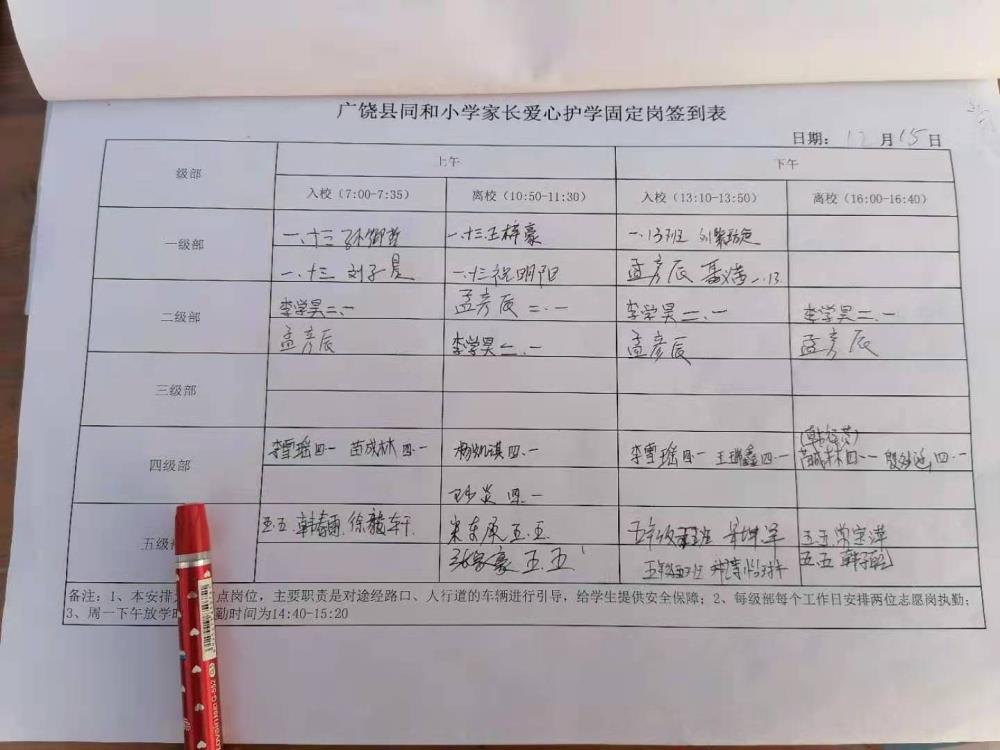 广饶县同和小学家长爱心护学固定岗签到表
日期： 12 月 15 日
级部 上午 下午
入校（7:00-7:35） 离校（10:50-11:30） 入校（13:10-13:50） 离校（16:00-16:40）
一级部 一.十三 孙御哲 一.十三.王梓豪 一.13班
一.十三 刘子晨 一.十三祝明阳 孟彦辰 一.13
二级部 李学昊二.一 孟彦辰 二.一 李学昊二.一 李学昊二.一
孟彦辰 李学昊二.一 孟彦辰 孟彦辰
三级部
四级部 李雪瑶四一 苗成林 四.一 四.一 李雪瑶四一 王瑞鑫四.一 苗成林四一 四.一
四.一
五级 五.五 韩春雨 徐毅轩 五.五 五年级五班 五.五
张家豪 五.五 五年级五班 五.五
备注：1、本安排 点岗位，主要职责是对途经路口、人行道的车辆进行引导，给学生提供安全保障；2、每级部每个工作日安排两位志愿岗执勤；
3、周一下午放学时 勤时间为14:40-15:20